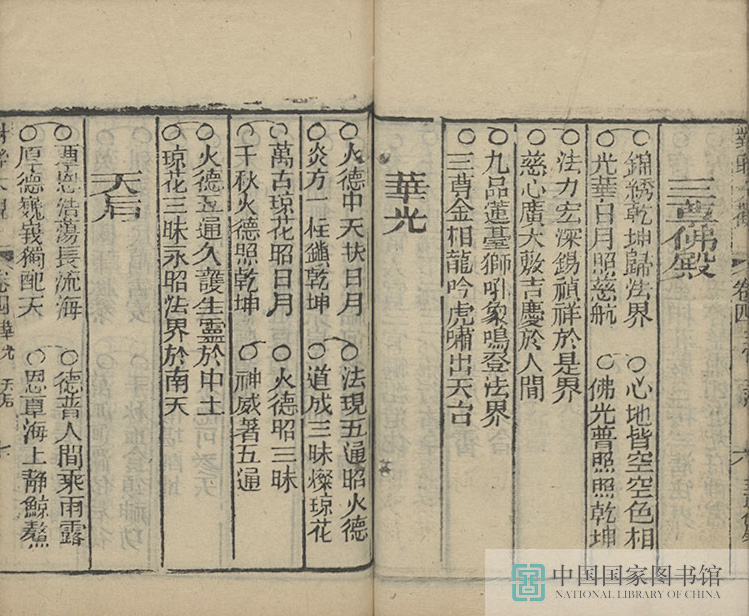 三尊佛殿
錦綉乾坤歸法界 心地皆空空色相
光華日月照慈航 佛光普照照乾坤
法力宏深錫禎祥於是界
慈心廣大敷吉慶於人間
九品蓮臺獅吼象鳴登法界
三尊金相龍吟虎嘯出天台
華光
火德中天扶日月 法現五通昭火德
炎方一柱鎮乾坤 道成三昧燦琼花
萬古琼花昭日月 火德昭三昧
千秋火德照乾坤 神威著五通
火德五通久護生靈於中土
琼花三昧永昭法界於南天
天后
澤恩浩蕩長流海 德普人間乘雨露
厚德巍峩獨配天 恩覃海上靜鯨鰲
卷四
中国国家图书馆
NATIONAL LIBRARY OF CHINA